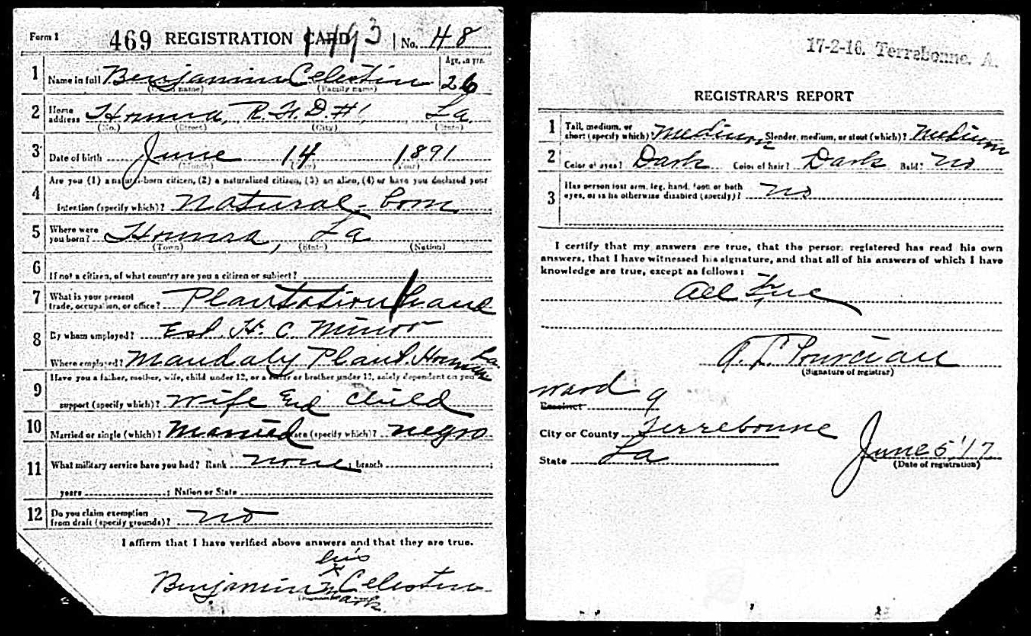 Form 1 469 REGISTRATION CARD 1493 No. 48
1 Name in full Benjamin Celestin Age, in yrs. 26
(Given name) (Family name)
2 Home address Houma, R.F.D.#1 La
(No.) (Street) (City) (State)
3 Date of birth June 14 1891
4 Are you (1) a natural-born citizen, (2) a naturalized citizen, (3) an alien, (4) or have you declared your
intention (specify which)? Natural-born
5 Where were you born? Houma, La
(Town) (State) (Nation)
6 If not a citizen, of what country are you a citizen or subject?
7 What is your present trade, occupation, or office? Plantation hand
8 By whom employed? Est. H. C. Minor
Where employed? Mandaly Plant. Houma La
9 Have you a father, mother, wife, child under 12, or a sister or brother under 12, solely dependent on you for
support (specify which)? Wife and child
10 Married or single (which)? Married Race (specify which)? negro
11 What military service have you had? Rank none ; branch
years ; Nation or State
12 Do you claim exemption from draft (specify grounds)? no
I affirm that I have verified above answers and that they are true.
his
Benjamin x Celestin
mark
17-2-16. Terrebonne. A.
REGISTRAR'S REPORT
1 Tall, medium, or short (specify which)? Medium Slender, medium, or stout (which)? Medium
2 Color of eyes? Dark Color of hair? Dark Bald? no
3 Has person lost arm, leg, hand, foot, or both
eyes, or is he otherwise disabled (specify)? no
I certify that my answers are true, that the person registered has read his own
answers, that I have witnessed his signature, and that all of his answers of which I have
knowledge are true, except as follows:
All true
A. L. Pourciau
(Signature of registrar)
Ward 9
Precinct
City or County Terrebonne
State La
June 5 '17
(Date of registration)